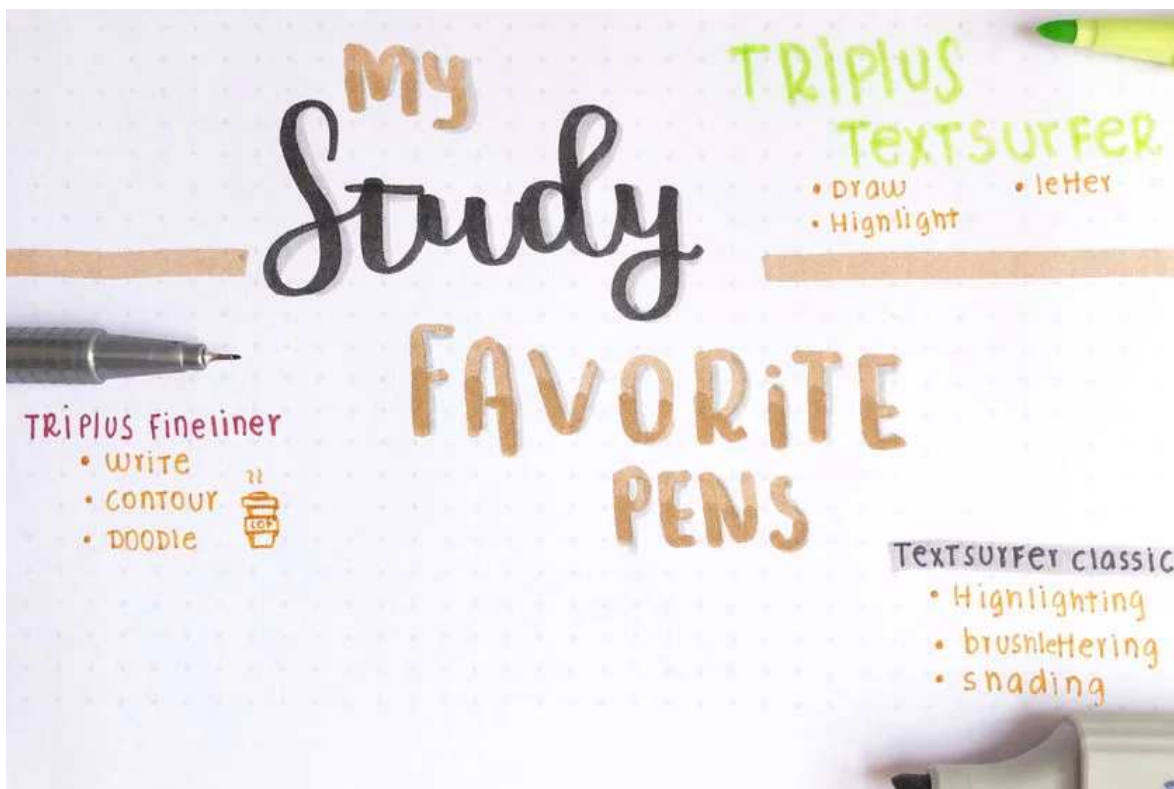 My
Study
FAVORiTE
PENS
TRiPlUS
TexTSUrFeR
• Draw
• letter
• Highlight
TRiPlUS Fineliner
• write
• CONTOUr
• DOODle
TexTSUrFer classic
• Highlighting
• brushlettering
• shading